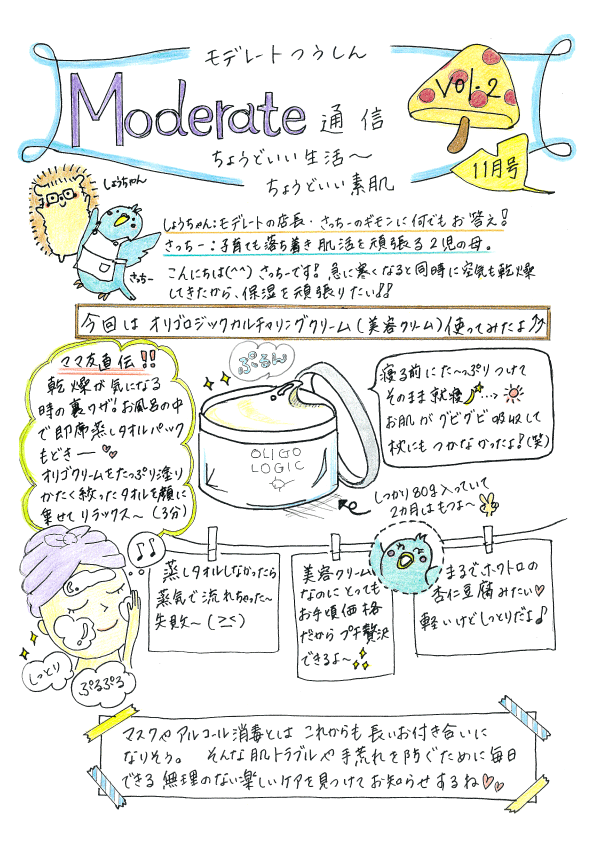 モデレートつうしん
Moderate 通信
Vol.2
11月号
ちょうどいい生活〜
ちょうどいい素肌
しょうちゃん
さっちー
しょうちゃん:モデレートの店長・さっちーのギモンに何でもお答え!
さっちー:子育ても落ち着き肌活を頑張る2児の母。
こんにちは(^^) さっちーです! 急に寒くなると同時に空気も乾燥
してきたから、保湿を頑張りたい!!
今回は オリゴロジックカルチャリングクリーム(美容クリーム)使ってみたよ♪
ママ友直伝!!
乾燥が気になる
時の裏ワザ!お風呂の中
で即席蒸しタオルパック
もどきー♥♥
オリゴクリームをたっぷり塗り
かたく絞ったタオルを顔に
乗せてリラックス〜(3分)
ぷるん
OLIGO
LOGIC
寝る前にた〜っぷりつけて
そのまま就寝
お肌がグビグビ吸収して
枕にもつかなかったよ!(笑)
しっかり80g入っていて
2カ月はもつよ〜
♪♪
しっとり
ぷるぷる
蒸しタオルしなかったら
蒸気で流れちゃった〜
失敗〜(≧≦)
美容クリーム
なのにとっても
お手頃価格
だからプチ贅沢
できるよ〜
まるでホワトロの
杏仁豆腐みたい♥
軽いけどしっとりだよ♪
マスクやアルコール消毒とは これからも長いお付き合いに
なりそう。 そんな肌トラブルや手荒れを防ぐために毎日
できる無理のない楽しいケアを見つけてお知らせするね♥♥